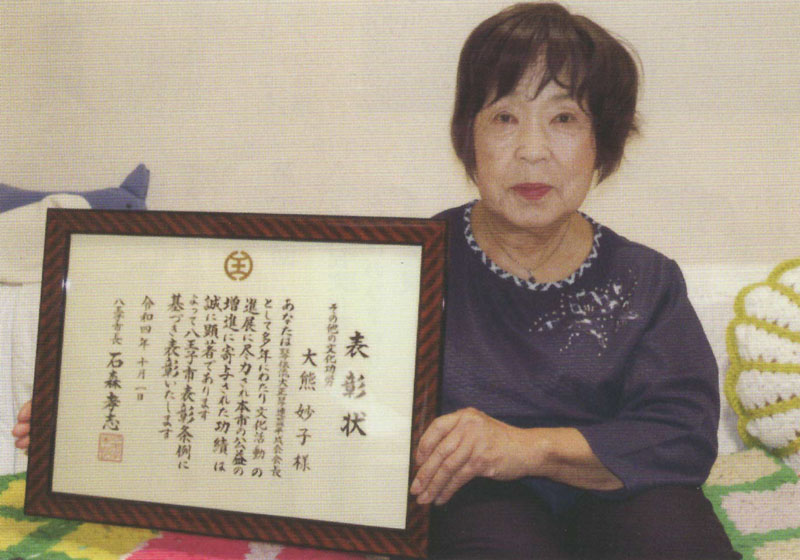 表彰状
その他の文化功労
大熊妙子様
あなたは
会会長
として多年にわたり文化活動の
進展に尽力され本市の公益の
増進に寄与された功績は
誠に顕著であります
よって八王子市表彰条例に
基づき表彰いたします
令和四年十月一日
八王子市長 石森孝志